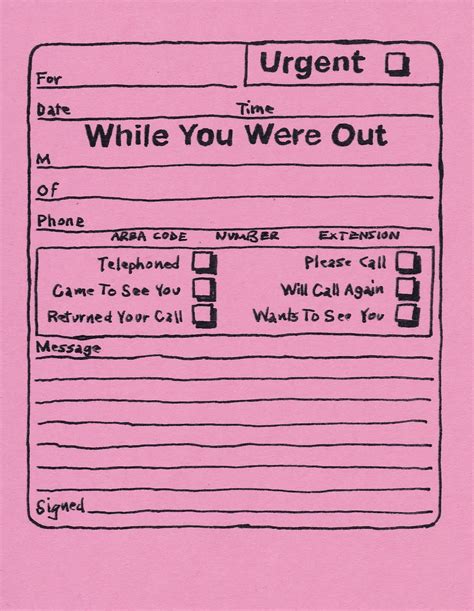 Urgent
For
Date Time
While You Were Out
M
Of
Phone
AREA CODE NUMBER EXTENSION
Telephoned Please Call
Came To See You Will Call Again
Returned Your Call Wants To See You
Message
Signed